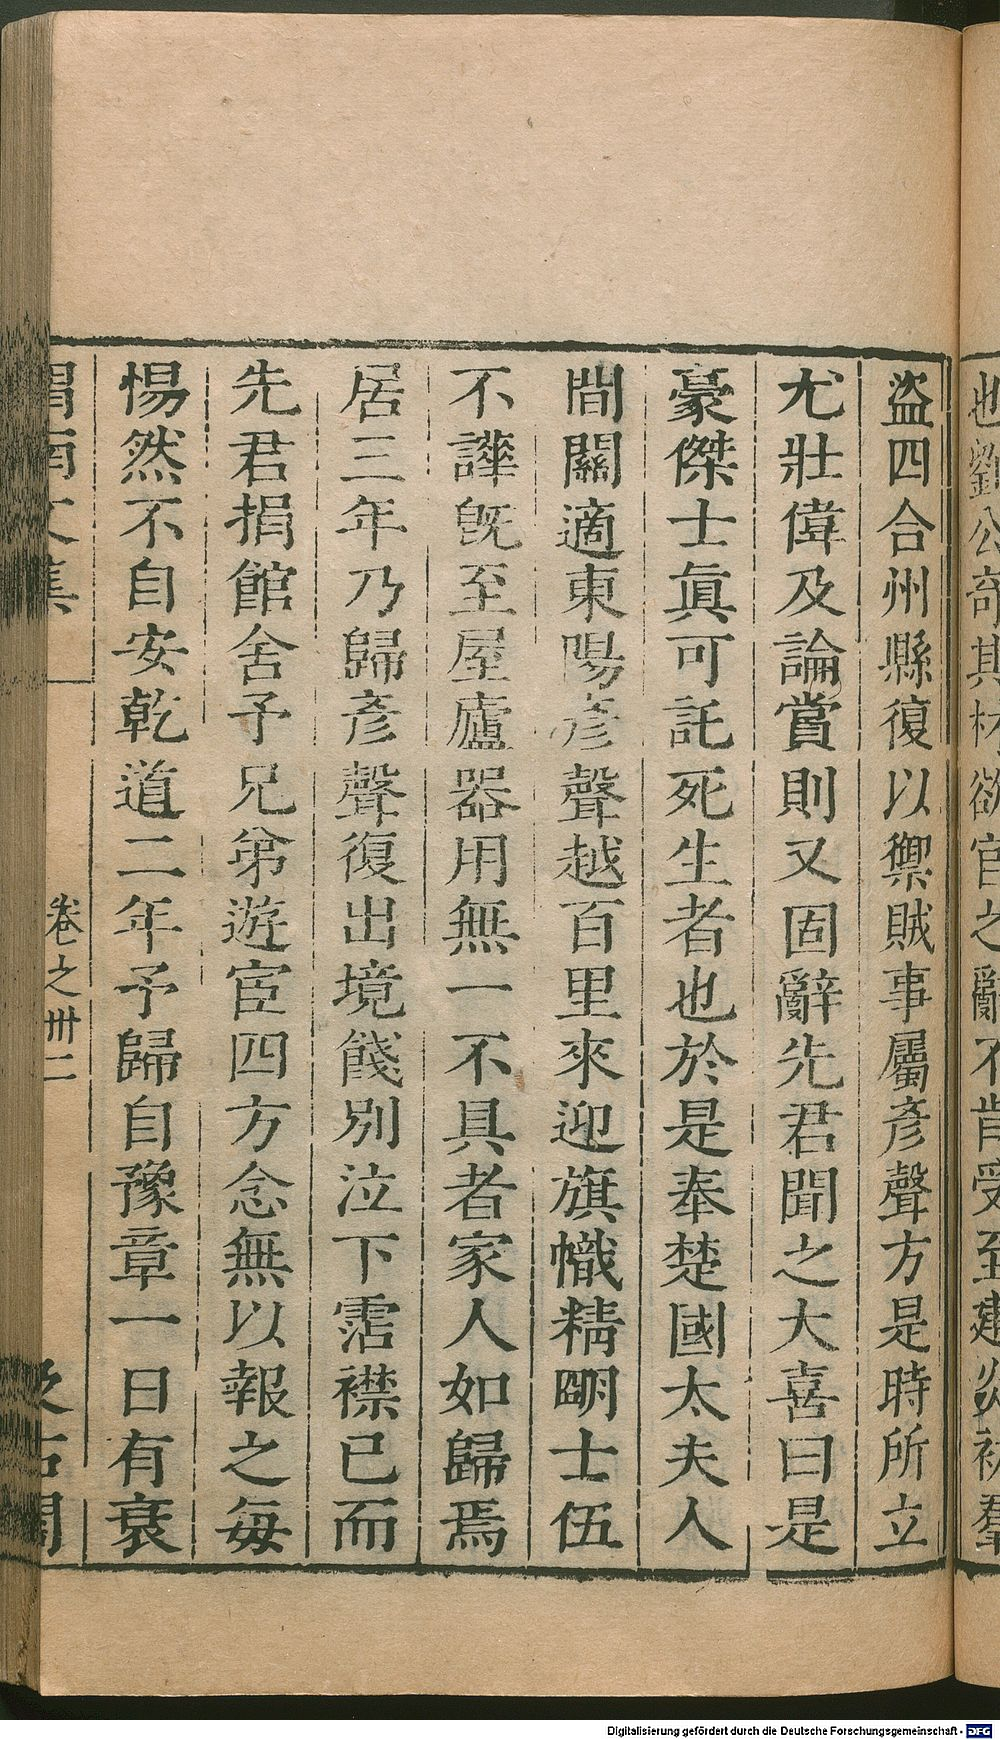 也劉公奇其材欲官之辭不肯受至建炎初羣
盜四合州縣復以禦賊事屬彥聲方是時所立
尤壯偉及論賞則又固辭先君聞之大喜曰是
豪傑士眞可託死生者也於是奉楚國太夫人
間關適東陽彥聲越百里來迎旗幟精明士伍
不譁旣至屋廬器用無一不具者家人如歸焉
居三年乃歸彥聲復出境餞別泣下霑襟已而
先君捐館舍予兄弟遊宦四方念無以報之每
惕然不自安乾道二年予歸自豫章一日有衰
渭南文集 卷之卅二 汲古閣
Digitalisierung gefördert durch die Deutsche Forschungsgemeinschaft - DFG